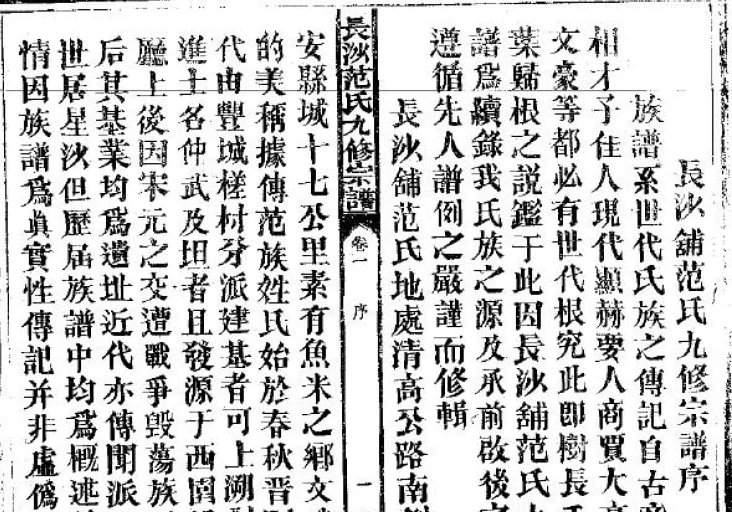 長沙舖范氏九修宗譜序
族譜系世代氏族之傳記自古帝
相才子仕人現代顯赫要人商賈大
文豪等都必有世代根究此即樹長千
葉歸根之説鑑于此因長沙舖范氏九
譜爲續錄我氏族之源及承前啟後
遵循先人譜例之嚴謹而修輯
長沙舖范氏地處清高公路南
長沙范氏九修宗譜
卷一
序
一
安縣城十七公里素有魚米之鄉文
的美稱據傳范族姓氏始於春秋晋
代由豐城槎村分派建基者可上溯
進士名仲武及坦者且發源于西圍
廳上後因宋元之交遭戰爭毀蕩族
后其基業均爲遺址近代亦傳聞派
世居星沙但歷届族譜中均爲概述
情因族譜爲眞實性傳記并非虛僞